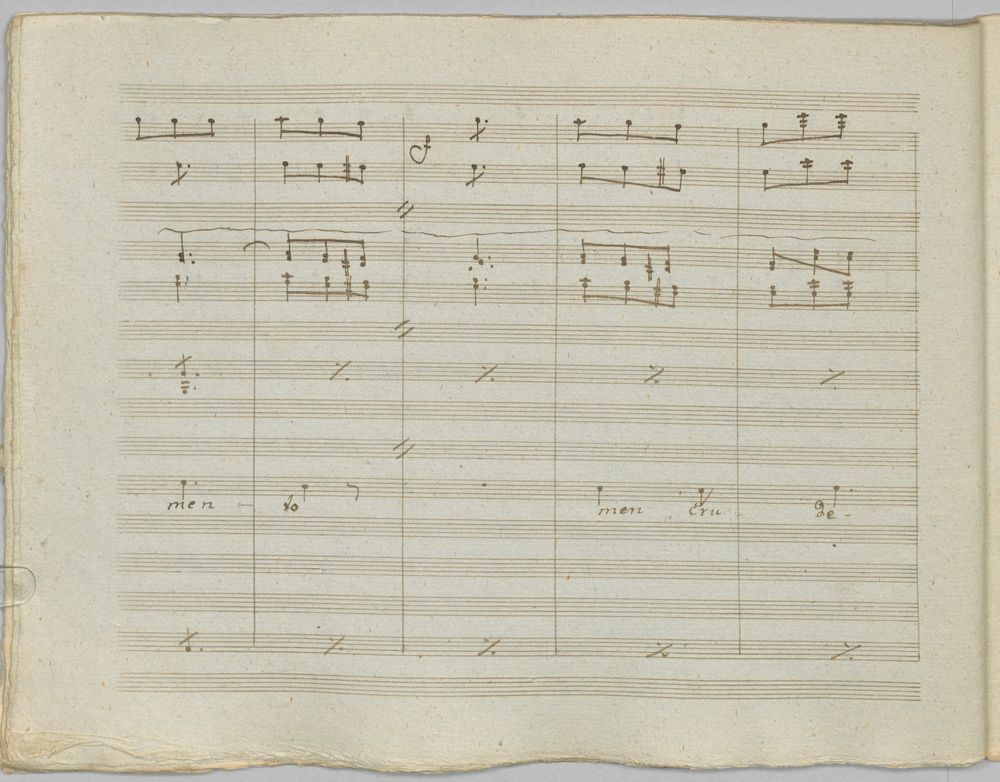 f
men - to men cru - de -